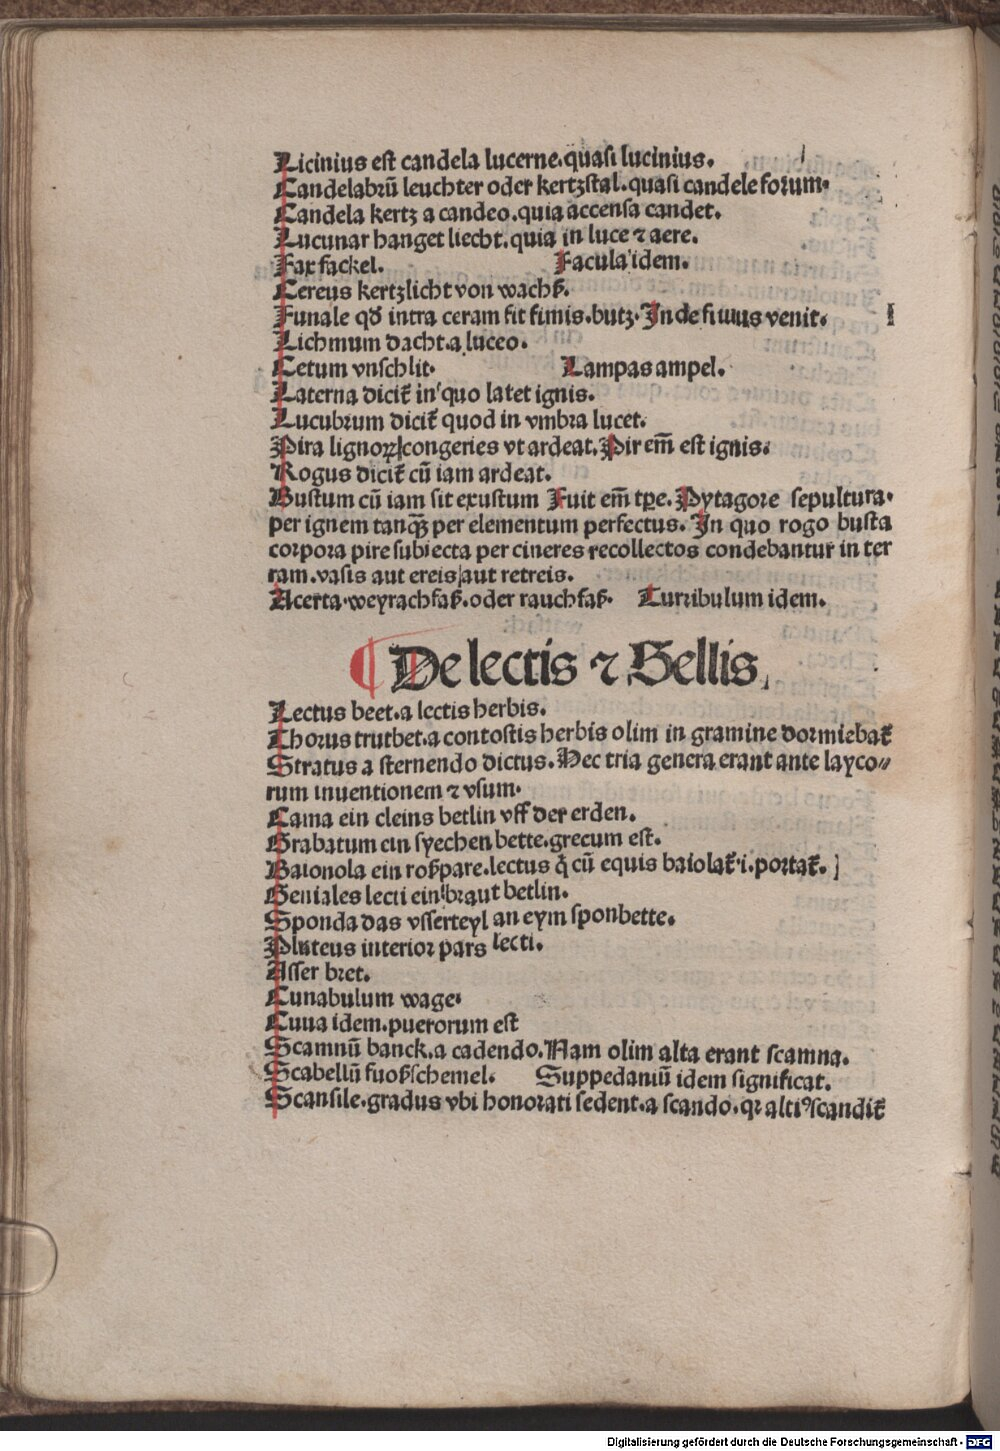 Licinius est candela lucerne.quasi lucinius.
Candelabrū leuchter oder kertzstal.quasi candele forum.
Candela kertz a candeo.quia accensa candet.
Lucunar hanget liecht.quia in luce ⁊ aere.
Fax fackel. Facula idem.
Cereus kertzlicht von wachß.
Funale qđ intra ceram fit fimis.butz.In de fiuus venit.
Lichmum dacht.a luceo.
Cetum vnschlit. Lampas ampel.
Laterna dicit̄ in quo latet ignis.
Lucubrum dicit̄ quod in vmbra lucet.
Pira lignoꝝ congeries vt ardeat.Pir em̄ est ignis.
Rogus dicit̄ cū iam ardeat.
Bustum cū iam sit exustum Fuit em̄ tꝑe.Pytagore sepultura.
per ignem tanq̄ꝫ per elementum perfectus.In quo rogo busta
corpora pire subiecta per cineres recollectos condebantur in ter
ram.vasis aut ereis aut retreis.
Acerta.weyrachfaß.oder rauchfaß. Turribulum idem.
De lectis ⁊ Sellis
Lectus beet.a lectis herbis.
Thorus trutbet.a contostis herbis olim in gramine dormiebāt
Stratus a sternendo dictus.Hec tria genera erant ante layco⸗
rum inuentionem ⁊ vsum.
Cama ein cleins betlin vff der erden.
Grabatum ein syechen bette.grecum est.
Baionola ein roßpare.lectus q̄ cū equis baiolat̄.i.portat̄.
Geniales lecti ein braut betlin.
Sponda das vsserteyl an eym sponbette.
Pluteus interior pars lecti.
Asser bret.
Cunabulum wage.
Cuua idem.puerorum est
Scamnū banck.a cadendo.Nam olim alta erant scamna.
Scabellū fuoßschemel. Suppedaniū idem significat.
Scansile.gradus vbi honorati sedent.a scando.qꝛ altiꝰ scandit̄
Digitalisierung gefördert durch die Deutsche Forschungsgemeinschaft - DFG